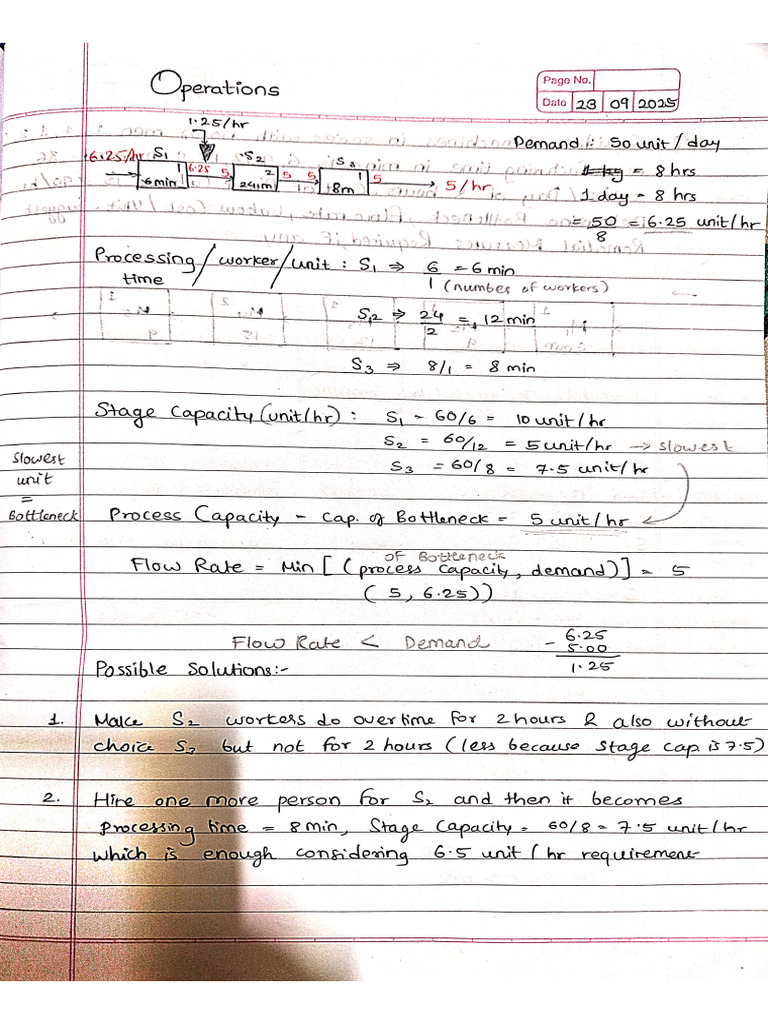 Operations
Page No.
Date 23 09 2025
1.25/hr
Demand : 50 unit/day
6.25/hr S1 6.25 5 S2 5 5 S3 5
1 kg = 8 hrs
1 6 min 2 24m 1 8m 5/hr
1 day - 8 hrs
= 50/8 = 6.25 unit/hr
Processing/worker/unit : S1 ⇒ 6/1 = 6 min
time
(number of workers)
S2 ⇒ 24/2 = 12 min
S3 ⇒ 8/1 = 8 min
Stage Capacity (unit/hr) : S1 - 60/6 = 10 unit/hr
S2 = 60/12 = 5 unit/hr → slowest
S3 = 60/8 = 7.5 unit/hr
Slowest
unit
=
Bottleneck
Process Capacity - cap. of Bottleneck = 5 unit/hr
of Bottleneck
Flow Rate = Min [ (process capacity, demand)] = 5
( 5, 6.25))
Flow Rate < Demand
- 6.25
5.00
1.25
Possible Solutions:-
1. Make S2 workers do overtime for 2 hours & also without
choice S3 but not for 2 hours (less because stage cap. is 7.5)
2. Hire one more person for S2 and then it becomes
processing time = 8 min, Stage Capacity = 60/8 = 7.5 unit/hr
which is enough considering 6.5 unit/hr requirement